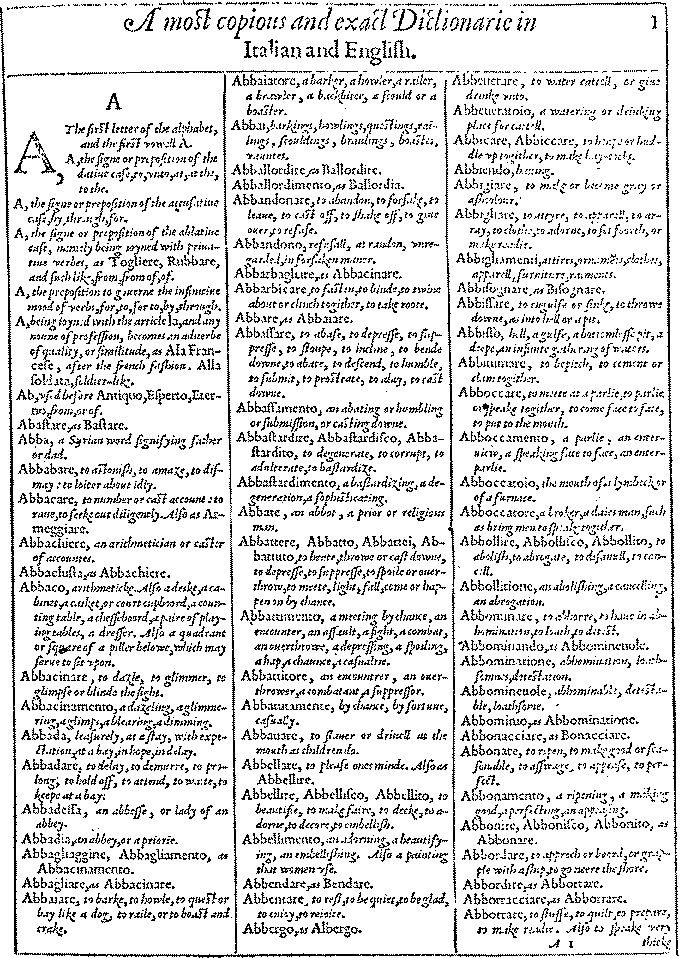 A most copious and exact Dictionarie in
Italian and English.
1
A
A, The first letter of the alphabet,
and the first vowell A.
A, the signe or preposition of the
datiue case, to, vnto, at, at the,
to the.
A, the signe or preposition of the accusatiue
case, by, through, for.
A, the signe or preposition of the ablatiue
case, namely being ioyned with priua-
tiue verbes, as Togliere, Rubbare,
and such like, from, from of, of.
A, the preposition to gouerne the infinitiue
mood of verbs, for, to, for to, by, through.
A, being ioynd with the article la, and any
noune of profession, becomes an aduerbe
of quality, or similitude, as Ala Fran-
cese, after the french fashion. Alla
soldata, soldier-like.
Ab, vsed before Antiquo, Esperto, Eter-
no, from, or of.
Abastare, as Bastare.
Abba, a Syrian word signifying father
or dad.
Abbabare, to astonish, to amaze, to dis-
may: to loiter about idly.
Abbacare, to number or cast account: to
raue, to seeke out diligently. Also as Ar-
meggiare.
Abbachiere, an arithmetician or caster
of accounts.
Abbachista, as Abbachiere.
Abbaco, arithmeticke. Also a deske, a ca-
binet, a casket, or court cupboord, a coun-
ting table, a chesse-boord, a paire of play-
ing tables, a dresser. Also a quadrant
or square of a piller belowe, which may
serue to sit vpon.
Abbacinare, to dazle, to glimmer, to
glimpse or blinde the sight.
Abbacinamento, a dazeling, a glimme-
ring, a glimps, a blearing, a dimming.
Abbada, leasurely, at a stay, with expe-
ctation, at a bay, in hope, in delay.
Abbadare, to delay, to demurre, to pro-
long, to hold off, to attend, to waite, to
keepe at a bay.
Abbadessa, an abbesse, or lady of an
abbey.
Abbadia, an abbey, or a priorie.
Abbagliaggine, Abbagliamento, as
Abbacinamento.
Abbagliare, as Abbacinare.
Abbaiare, to barke, to howle, to quest or
bay like a dog, to raile, or to boast and
crake.
Abbaiatore, a barker, a howler, a railer,
a brawler, a backbiter, a scould or a
boaster.
Abbai, barkings, howlings, questings, rai-
lings, scouldings, braulings, boastes,
vauntes.
Aballordire, as Ballordire.
Aballordimento, as Ballordia.
Abbandonare, to abandon, to forsake, to
leaue, to cast off, to shake off, to giue
ouer, to refuse.
Abbandono, refusall, at randon, vnre-
garded, in forsaken maner.
Abbarbagliare, as Abbacinare.
Abbarbicare, to fasten, to binde, to twine
about or clinch together, to take roote.
Abbare, as Abbaiare.
Abbassare, to abase, to depresse, to sup-
presse, to stoupe, to incline, to bende
downe, to abate, to descend, to humble,
to submit, to prostrate, to alay, to cast
downe.
Abbassamento, an abating or humbling
or submission, or casting downe.
Abbastardire, Abbastardisco, Abba-
stardito, to degenerate, to corrupt, to
adulterate, to bastardize.
Abbastardimento, a bastardizing, a de-
generation, a sophisticating.
Abbate, an abbot, a prior or religious
man.
Abbattere, Abbatto, Abbattei, Ab-
battuto, to beate, throwe or cast downe,
to depresse, to suppresse, to spoile or ouer-
throw, to meete, light, fall, come or hap-
pen on by chance.
Abbattimento, a meeting by chance, an
encounter, an assault, a fight, a combat,
an ouerthrowe, a depressing, a spoiling,
a hap, a chaunce, a casualtie.
Abbattitore, an encountrer, an ouer-
thrower, a combatant, a suppressor.
Abbatutamente, by chance, by fortune,
casually.
Abbauare, to slauer or driuell at the
mouth as children do.
Abbellare, to please ones minde. Also as
Abbellire.
Abbellire, Abbellisco, Abbellito, to
beautifie, to make faire, to decke, to a-
dorne, to decore, to embellish.
Abbellimento, an adorning, a beautify-
ing, an embellishing. Also a painting
that women vse.
Abbendare, as Bendare.
Abbentare, to rest, to be quiet, to be glad,
to enioy, to reioice.
Abbergo, as Albergo.
Abbeuerare, to water cattell, or giue
drinke vnto.
Abbeueratoio, a watering or drinking
place for cattell.
Abbicare, Abbiccare, to heape or hud-
dle vp together, to make hay-cocks.
Abbiendo, hauing.
Abbigiare, to make or become gray or
ashcolour.
Abbigliare, to attyre, to apparell, to ar-
ray, to clothe, to adorne, to set foorth, to
make readie.
Abbigliamenti, attires, ornaments, clothes,
apparell, furniture, rayments.
Abbisognare, as Bisognare.
Abbissare, to engulfe or sinke, to throwe
downe, as into hell or a pit.
Abbisso, hell, a gulfe, a bottomlesse pit, a
deepe, an infinite gathering of waters.
Abbitumare, to bepitch, to ciment or
clam together.
Abboccare, to meete at a parlie, to parlie
or speake together, to come face to face,
to put to the mouth.
Abboccamento, a parlie, an enter-
uiew, a speaking face to face, an enter-
parlie.
Abboccatoio, the mouth of a lymbecke or
of a furnace.
Abboccatore, a broker, a daies man, such
as bring men to speake together.
Abbollire, Abbollisco, Abbollito, to
abolish, to abrogate, to disanull, to can-
cell.
Abbollitione, an abolishing, a cancelling,
an abrogation.
Abbominare, to abhorre, to haue in ab-
homination, to loath, to detest.
Abbominando, as Abbomineuole.
Abbominatione, abhomination, loath-
somnes, detestation.
Abbomineuole, abhominable, detesta-
ble, loathsome.
Abbominio, as Abbominatione.
Abbonacciare, as Bonacciare.
Abbonare, to ripen, to make good or sea-
sonable, to asswage, to appease, to per-
fect.
Abbonamento, a ripening, a making
good, a perfecting, an appaying.
Abbonire, Abbonisco, Abbonito, as
Abbonare.
Abbordare, to approch or boord, or grap-
ple with a ship, to go neere the shore.
Abbordire, as Abortare.
Abborracciare, as Abborrare.
Abborrare, to stuffe, to quilt, to prepare,
to make readie. Also to speake very
A 1
thicke